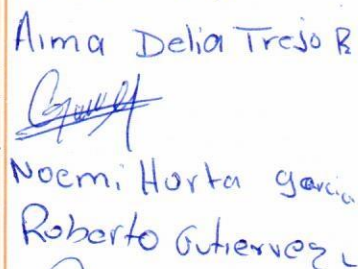 Alma Delia Trejo B
Noemi Horta garcia
Roberto Gutierrez L